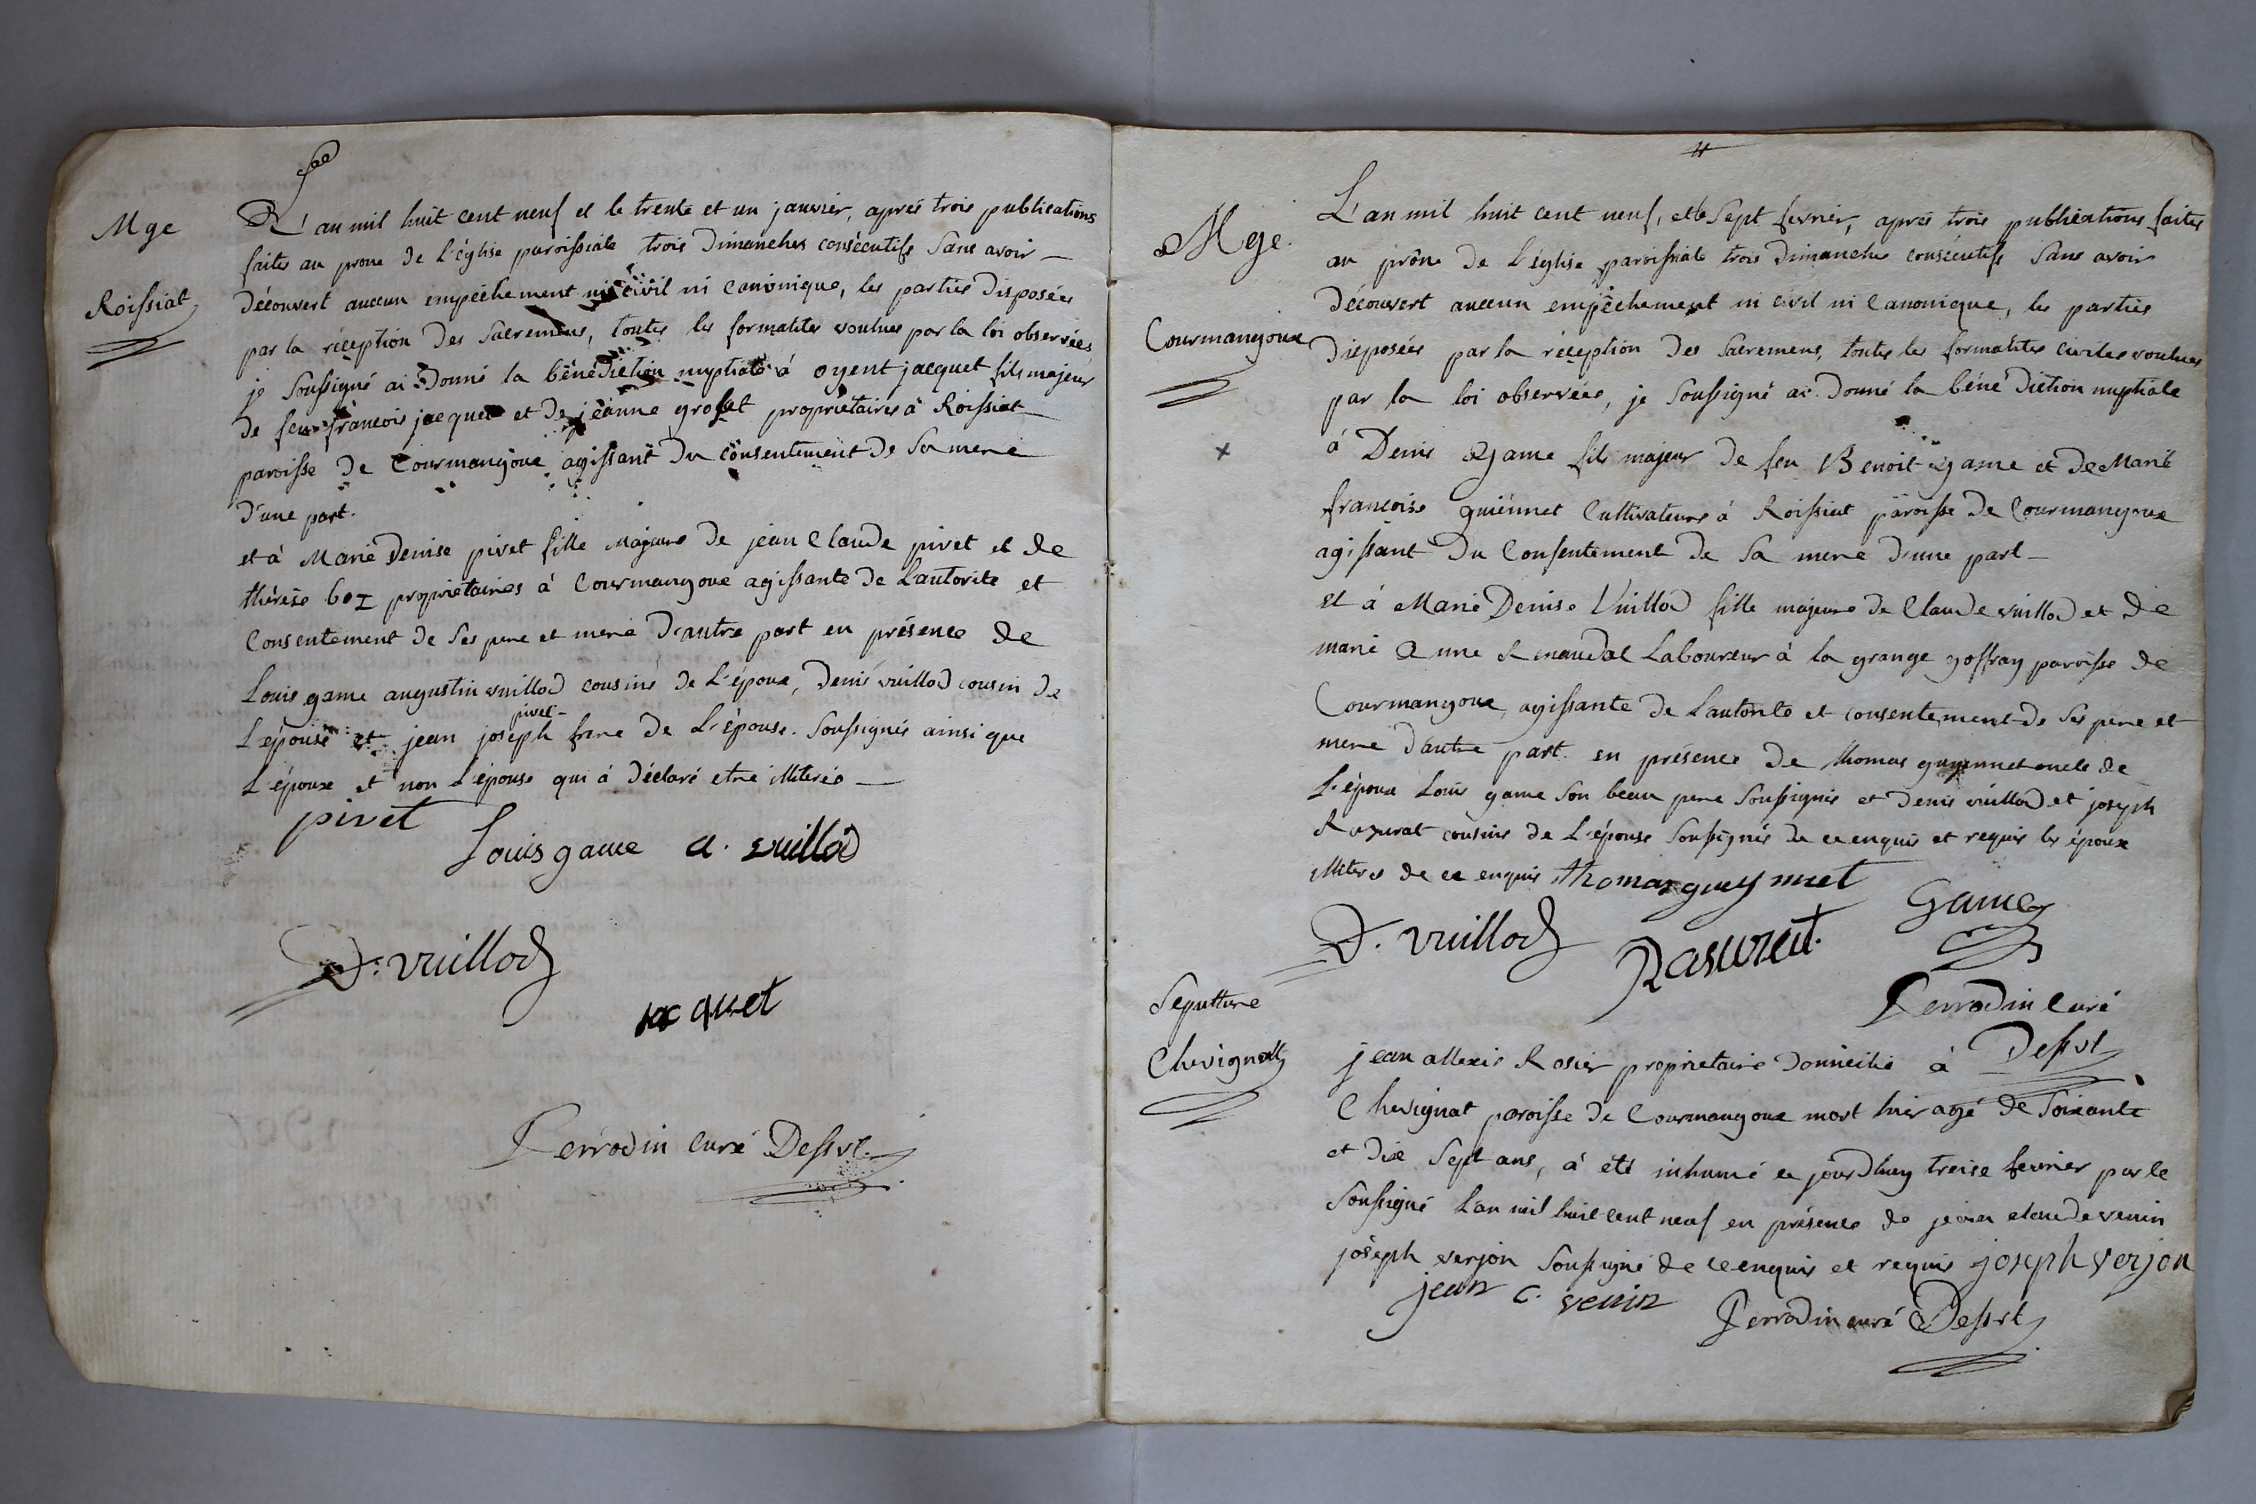 Mge
Roissiat
L'an mil huit cent neuf et le trente et un janvier, aprés trois publications
faites au prone de L'église paroissiale trois Dimanches consécutifs Sans avoir
Découvert aucun empêchement ni civil ni canonique, les parties Disposées
par la réception Des Sacremens, toutes les formalites voulues par la loi observées
je Soussigné ai Donné la bénédiction nuptiale à oyent jacquet fils majeur
de feu françois jacquet et de jeanne propriétaires à Roissiat
paroisse De Courmangoux agissant Du consentement De Sa mere
D'une part.
et à Marie Denise pivet fille Majeure De jean Claude pivet et de
thérèse propriétaires à Courmangoux agissante De L'autorite et
Consentement de Ses pere et mere D'autre part en présence De
Louis game augustin vuillod cousins de L'époux, Denis vuillod cousin De
pivet
L'épouse et jean joseph frere De L'épouse. Soussignés ainsi que
L'époux et non L'épouse qui à Déclaré etre illiterée
pivet
Louis game a. vuillod
D. vuillod
jacquet
Perrodin curé Desst
11
Mge.
Courmangoux
L'an mil huit cent neuf, et le Sept fevrier, aprés trois publications faites
au prône De L'église paroissiale trois Dimanches consécutifs Sans avoir
Découvert aucun empêchement ni civil ni Canonique, les parties
Disposées par la réception Des Sacremens, toutes les formalites civiles voulues
par la loi observées, je Soussigné ai Donné la bénédiction nuptiale
x
à Denis game fils majeur De feu Benoit game et De Marie
françoise guiennet Cultivateurs à Roissiat paroisse De Courmangoux
agissant Du Consentement De Sa mere D'une part
et à Marie Denise Vuillod fille majeure De Claude vuillod et De
marie anne Laboureur à la grange goffray paroisse De
Courmangoux, agissante De L'autorite et consentement De Ses pere et
mere D'autre part en présence De thomas oncle de
L'époux Louis game Son beau pere Soussignés et Denis vuillod et joseph
Razurat cousins De L'épouse Soussignés de ce enquis et requis les époux
illiteres De ce enquis thomas gueynnet
Game
D. vuillod Rasurat.
Perrodin curé
Desst
Sepulture
Chevignat
jean allexis Rosier proprietaire Domicilié à
Chevignat paroisse De Courmangoux mort hier agé De Soixante
et Dix Sept ans, à été inhumé ce jourdhuy treise fevrier par le
Soussigné L'an mil huit cent neuf en présence De jean claude venin
joseph verjon Soussigné De ce enquis et requis joseph verjon
jean c. venin
Perrodin curé Desst